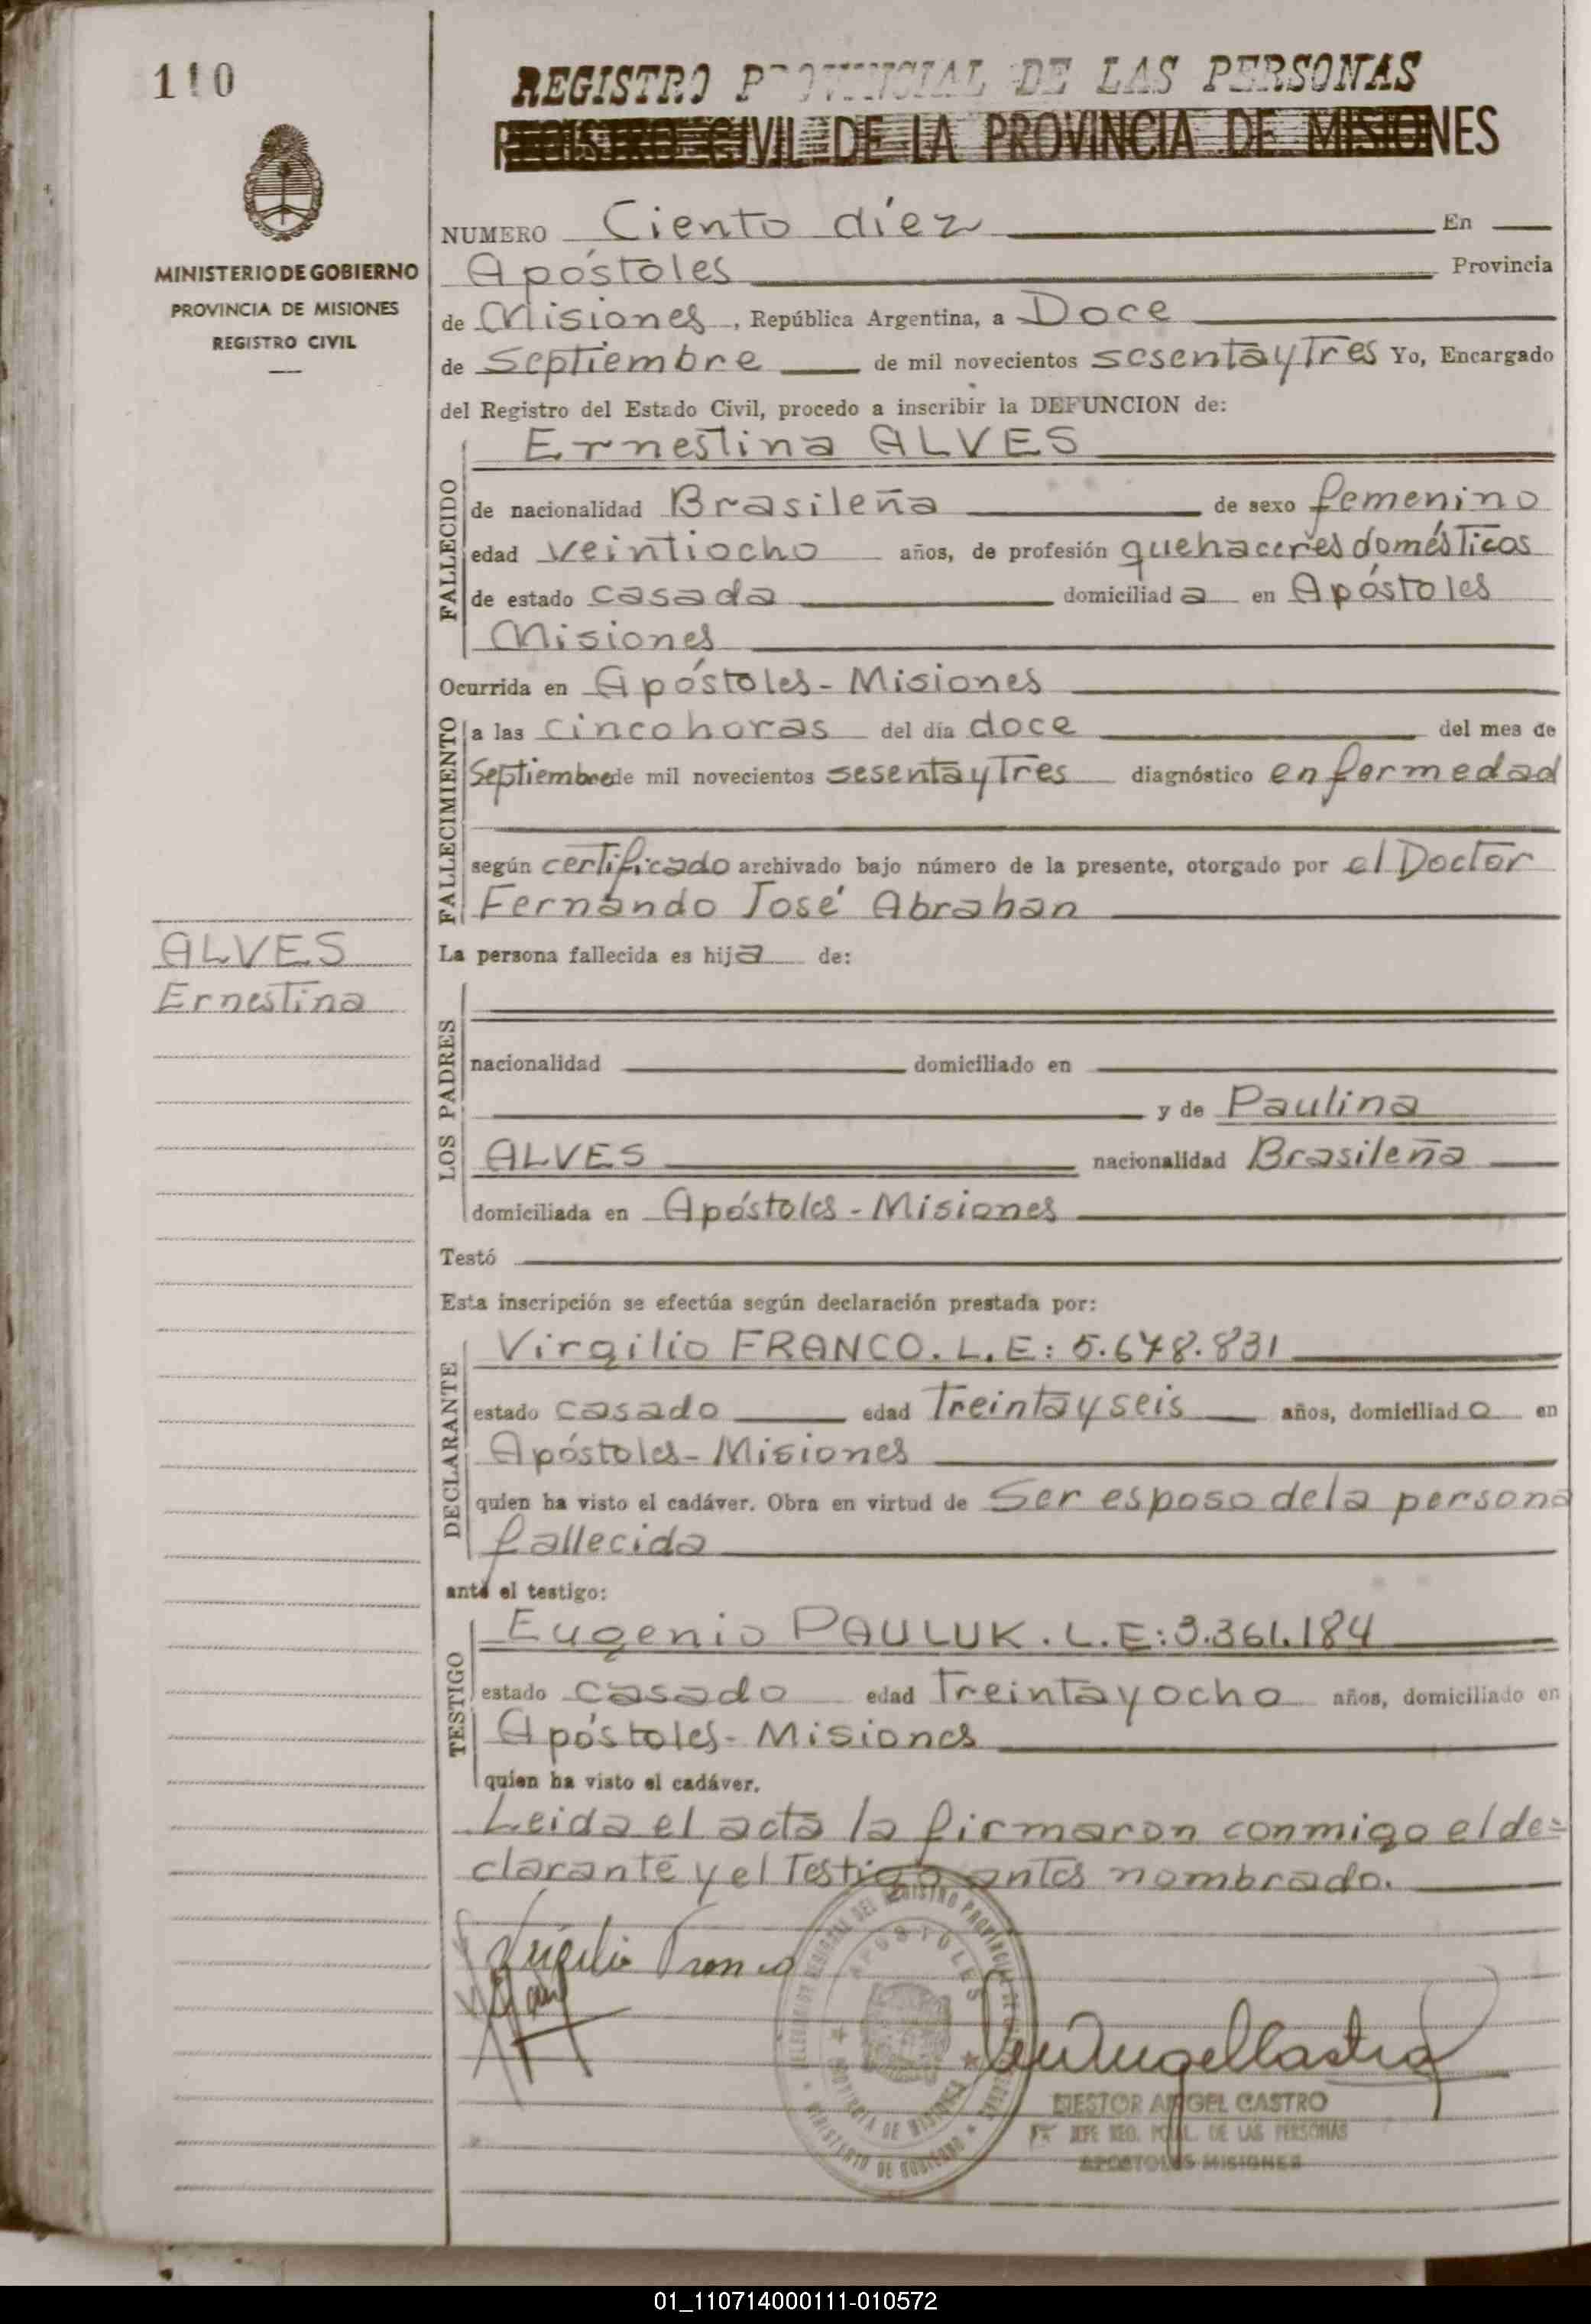 110
MINISTERIO DE GOBIERNO
PROVINCIA DE MISIONES
REGISTRO CIVIL
REGISTRO PROVINCIAL DE LAS PERSONAS
REGISTRO CIVIL DE LA PROVINCIA DE MISIONES
NUMERO Ciento diez En
Apóstoles Provincia
de Misiones, República Argentina, a Doce
de Septiembre de mil novecientos sesentaytres Yo, Encargado
del Registro del Estado Civil, procedo a inscribir la DEFUNCION de:
FALLECIDO
Ernestina ALVES
de nacionalidad Brasileña de sexo femenino
edad veintiocho años, de profesión quehaceres domésticos
de estado casada domiciliada en Apóstoles
Misiones
Ocurrida en Apóstoles - Misiones
FALLECIMIENTO
a las cinco horas del día doce del mes de
Septiembre de mil novecientos sesentaytres diagnóstico enfermedad
según certificado archivado bajo número de la presente, otorgado por el Doctor
Fernando José Abrahan
ALVES
Ernestina
La persona fallecida es hija de:
LOS PADRES
nacionalidad domiciliado en
y de Paulina
ALVES nacionalidad Brasileña
domiciliada en Apóstoles - Misiones
Testó
Esta inscripción se efectúa según declaración prestada por:
DECLARANTE
Virgilio FRANCO. L.E: 5.678.831
estado casado edad Treintayseis años, domiciliado en
Apóstoles - Misiones
quien ha visto el cadáver. Obra en virtud de Ser esposo de la persona
fallecida
ante el testigo:
TESTIGO
Eugenio PAULUK. L.E: 3.361.184
estado casado edad Treintayocho años, domiciliado en
Apóstoles - Misiones
quien ha visto el cadáver.
Leida el acta la firmaron conmigo el de=
clarante y el Testigo antes nombrado.
Virgilio Franco
APOSTOLES
PROVINCIA DE MISIONES
MINISTERIO DE GOBIERNO
NESTOR ANGEL CASTRO
JEFE REG. PCIAL. DE LAS PERSONAS
APOSTOLES MISIONES
01_110714000111-010572